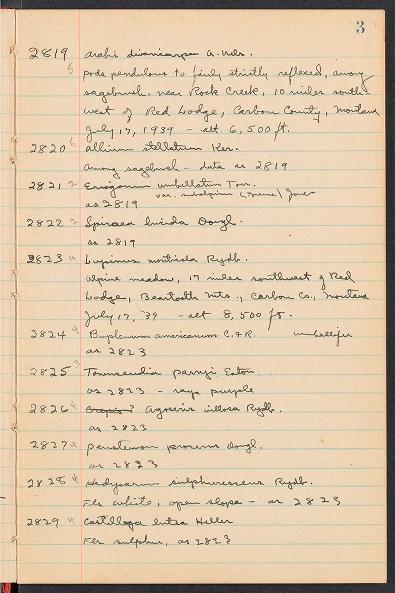 3
2819 Arabis divaricarpa A. Nels.
5 pods pendulous to fairly strictly reflexed, among
sagebrush, near Rock Creek, 10 miles south-
west of Red Lodge, Carbon County, Montana
July 17, 1939 - alt. 6,500 ft.
2820 6 Allium stellatum Ker.
among sagebrush - data as 2819
2821 2 Eriogonum umbellatum Torr.
var. subalpinum (Greene) Jones
as 2819
2822 2 Spiraea lucida Dougl.
as 2819
2823 4 Lupinus monticola Rydb.
alpine meadow, 17 miles southwest of Red
Lodge, Beartooth Mts., Carbon Co., Montana
July 17, '39 - alt 8,500 ft.
2824 4 Bupleurum americanum C. & R. umbellifer
as 2823
2825 3 Townsendia parryi Eaton.
as 2823 - rays purple
2826 4 Crepis? Agoseris villosa Rydb.
as 2823
2827 4 Penstemon procerus Dougl.
as 2823
2828 4 Hedysarum sulphurescens Rydb.
Fls white, open slope - as 2823
2829 4 Castilleja lutea Heller
Fls sulphur, as 2823